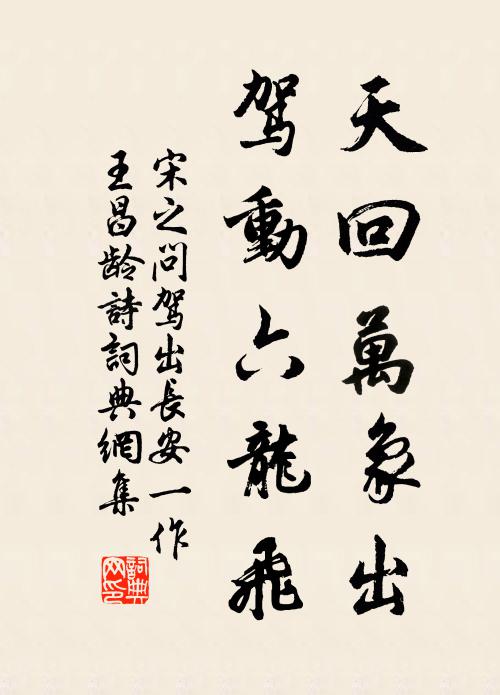 天回萬象出
駕動六龍飛
宋之问駕出長安一作
王昌龄詩詞典網集
詞典网印